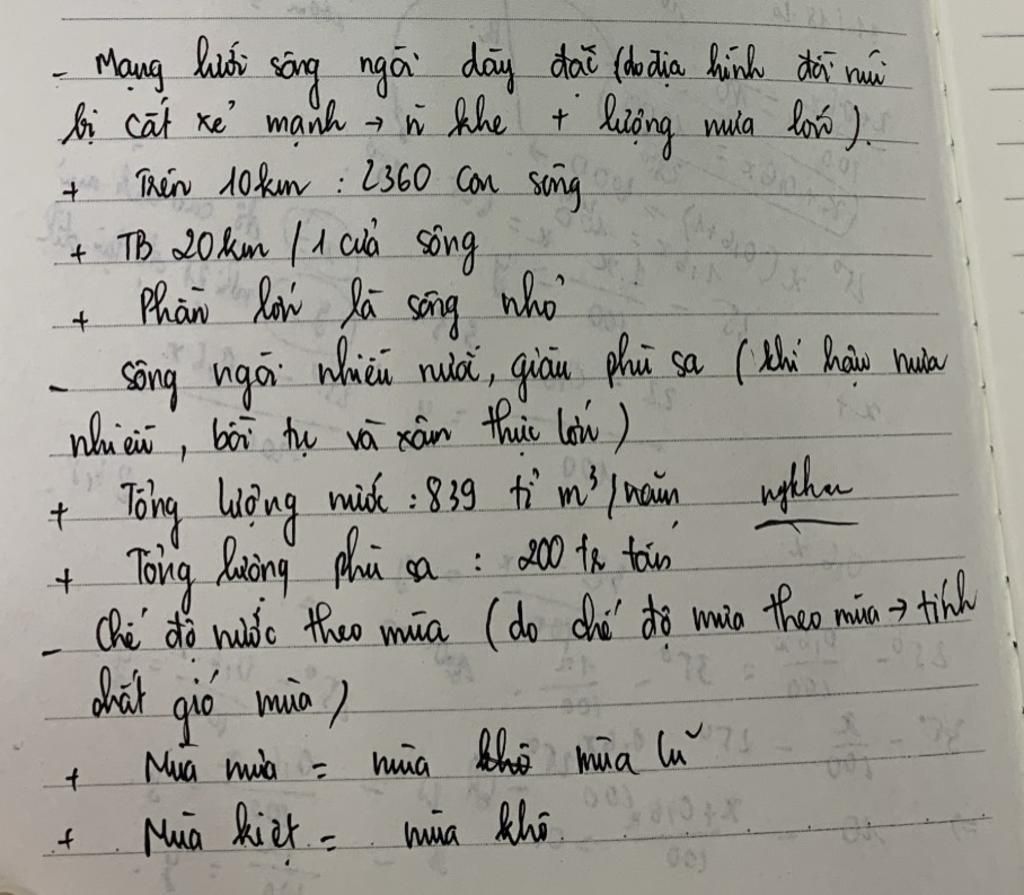 - Mạng lưới sông ngòi dày đặc (do địa hình đồi núi
bị cắt xẻ mạnh → ñ khe + lượng mưa lớn).
+ Trên 10km : 2360 con sông
+ TB 20km / 1 cửa sông
+ Phần lớn là sông nhỏ
- Sông ngòi nhiều nước, giàu phù sa (khí hậu mưa
nhiều, bồi tụ và xâm thực lớn)
+ Tổng lượng nước : 839 tỉ m³/năm
+ Tổng lượng phù sa : 200 tr tấn
- Chế độ nước theo mùa (do chế độ mưa theo mùa → tính
chất gió mùa)
+ Mùa mưa = mùa khô mùa lũ
+ Mùa kiệt = mùa khô